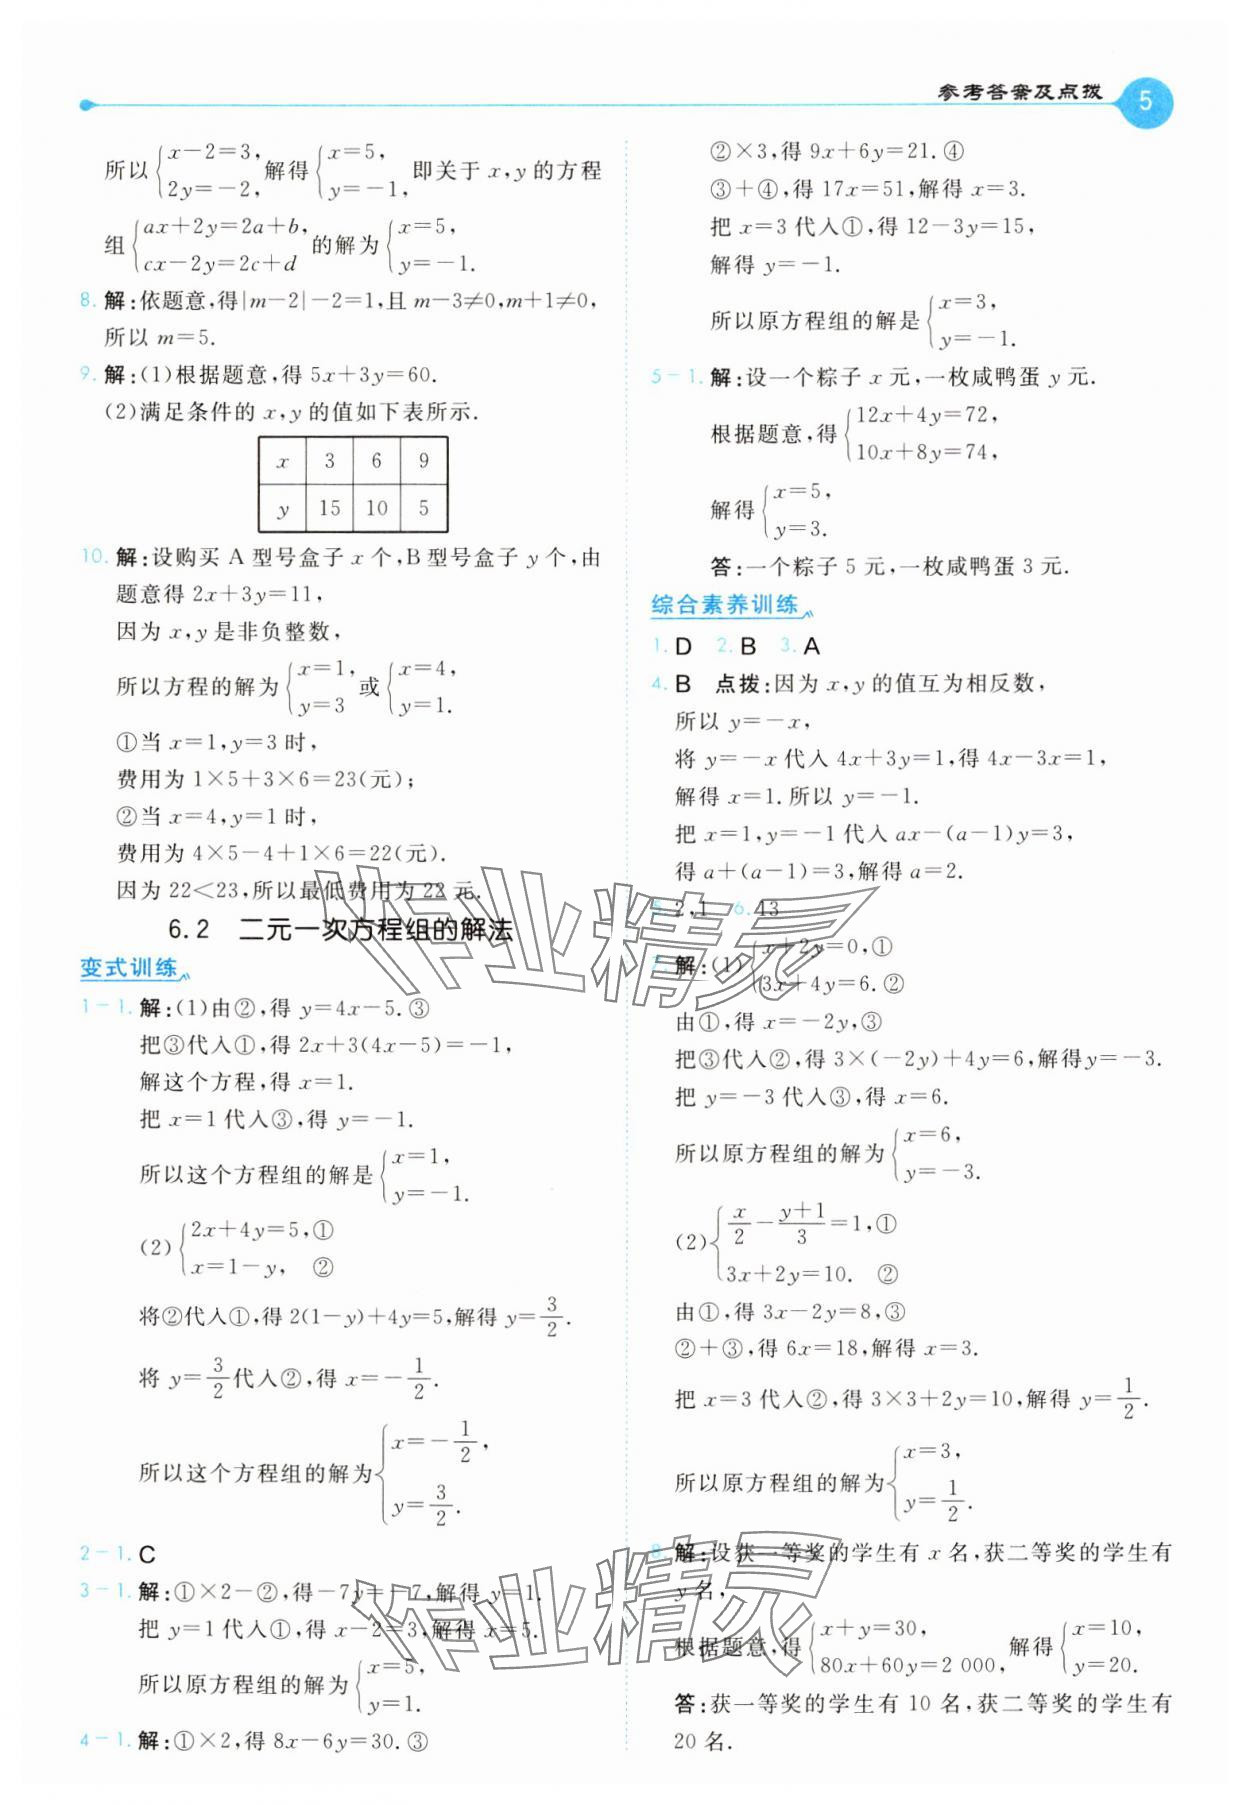 参考答案及点拨 5
所以{x−2=3, 2y=−2,解得{x=5, y=−1,即关于 x,y的方程
组{ax+2y=2a+b, cx−2y=2c+d的解为{x=5, y=−1.
8. 解:依题意,得|m−2|−2=1,且 m−3≠0,m+1≠0,
所以 m=5.
9. 解:(1)根据题意,得 5x+3y=60.
(2)满足条件的 x,y 的值如下表所示.
x 3 6 9
y 15 10 5
10. 解:设购买 A 型号盒子 x 个,B型号盒子 y 个,由
题意得 2x+3y=11,
因为 x,y 是非负整数,
所以方程的解为{x=1, y=3或{x=4, y=1.
①当 x=1,y=3 时,
费用为 1×5+3×6=23(元);
②当 x=4,y=1 时,
费用为 4×5−4+1×6=22(元).
因为 22<23,所以最低费用为 22 元.
6.2 二元一次方程组的解法
变式训练
1−1. 解:(1)由②,得 y=4x−5.③
把③代入①,得 2x+3(4x−5)=−1,
解这个方程,得 x=1.
把 x=1代入③,得 y=−1.
所以这个方程组的解是{x=1, y=−1.
(2){2x+4y=5,① x=1−y, ②
将②代入①,得 2(1−y)+4y=5,解得 y=3/2.
将 y=3/2代入②,得 x=−1/2.
所以这个方程组的解为{x=−1/2, y=3/2.
2−1. C
3−1. 解:①×2−②,得−7y=−7,解得 y=1.
把 y=1代入①,得 x−2=3,解得 x=5.
所以原方程组的解为{x=5, y=1.
4−1. 解:①×2,得 8x−6y=30.③
②×3,得 9x+6y=21.④
③+④,得 17x=51,解得 x=3.
把 x=3 代入①,得 12−3y=15,
解得 y=−1.
所以原方程组的解是{x=3, y=−1.
5−1. 解:设一个粽子 x 元,一枚咸鸭蛋 y 元.
根据题意,得{12x+4y=72, 10x+8y=74,
解得{x=5, y=3.
答:一个粽子 5 元,一枚咸鸭蛋 3 元.
综合素养训练
1. D 2. B 3. A
4. B 点拨:因为 x,y 的值互为相反数,
所以 y=−x,
将 y=−x代入 4x+3y=1,得 4x−3x=1,
解得 x=1.所以 y=−1.
把 x=1,y=−1代入 ax−(a−1)y=3,
得 a+(a−1)=3,解得 a=2.
5. 2,1 6. 43
7. 解:(1){x+2y=0,① 3x+4y=6.②
由①,得 x=−2y,③
把③代入②,得 3×(−2y)+4y=6,解得y=−3.
把 y=−3代入③,得 x=6.
所以原方程组的解为{x=6, y=−3.
(2){x/2−(y+1)/3=1,① 3x+2y=10. ②
由①,得 3x−2y=8,③
②+③,得 6x=18,解得 x=3.
把 x=3 代入②,得 3×3+2y=10,解得 y=1/2.
所以原方程组的解为{x=3, y=1/2.
8. 解:设获一等奖的学生有 x 名,获二等奖的学生有
y名,
根据题意,得{x+y=30, 80x+60y=2 000,解得{x=10, y=20.
答:获一等奖的学生有 10 名,获二等奖的学生有
20 名.
作业精灵
作业精灵